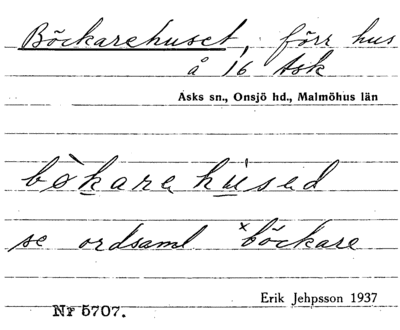 Böckarehuset, förr hus
å 16 Ask
Asks sn., Onsjö hd., Malmöhus län
bòkarehúsed
se ordsaml ˣböckare
Erik Jehpsson 1937
Nr 5707.